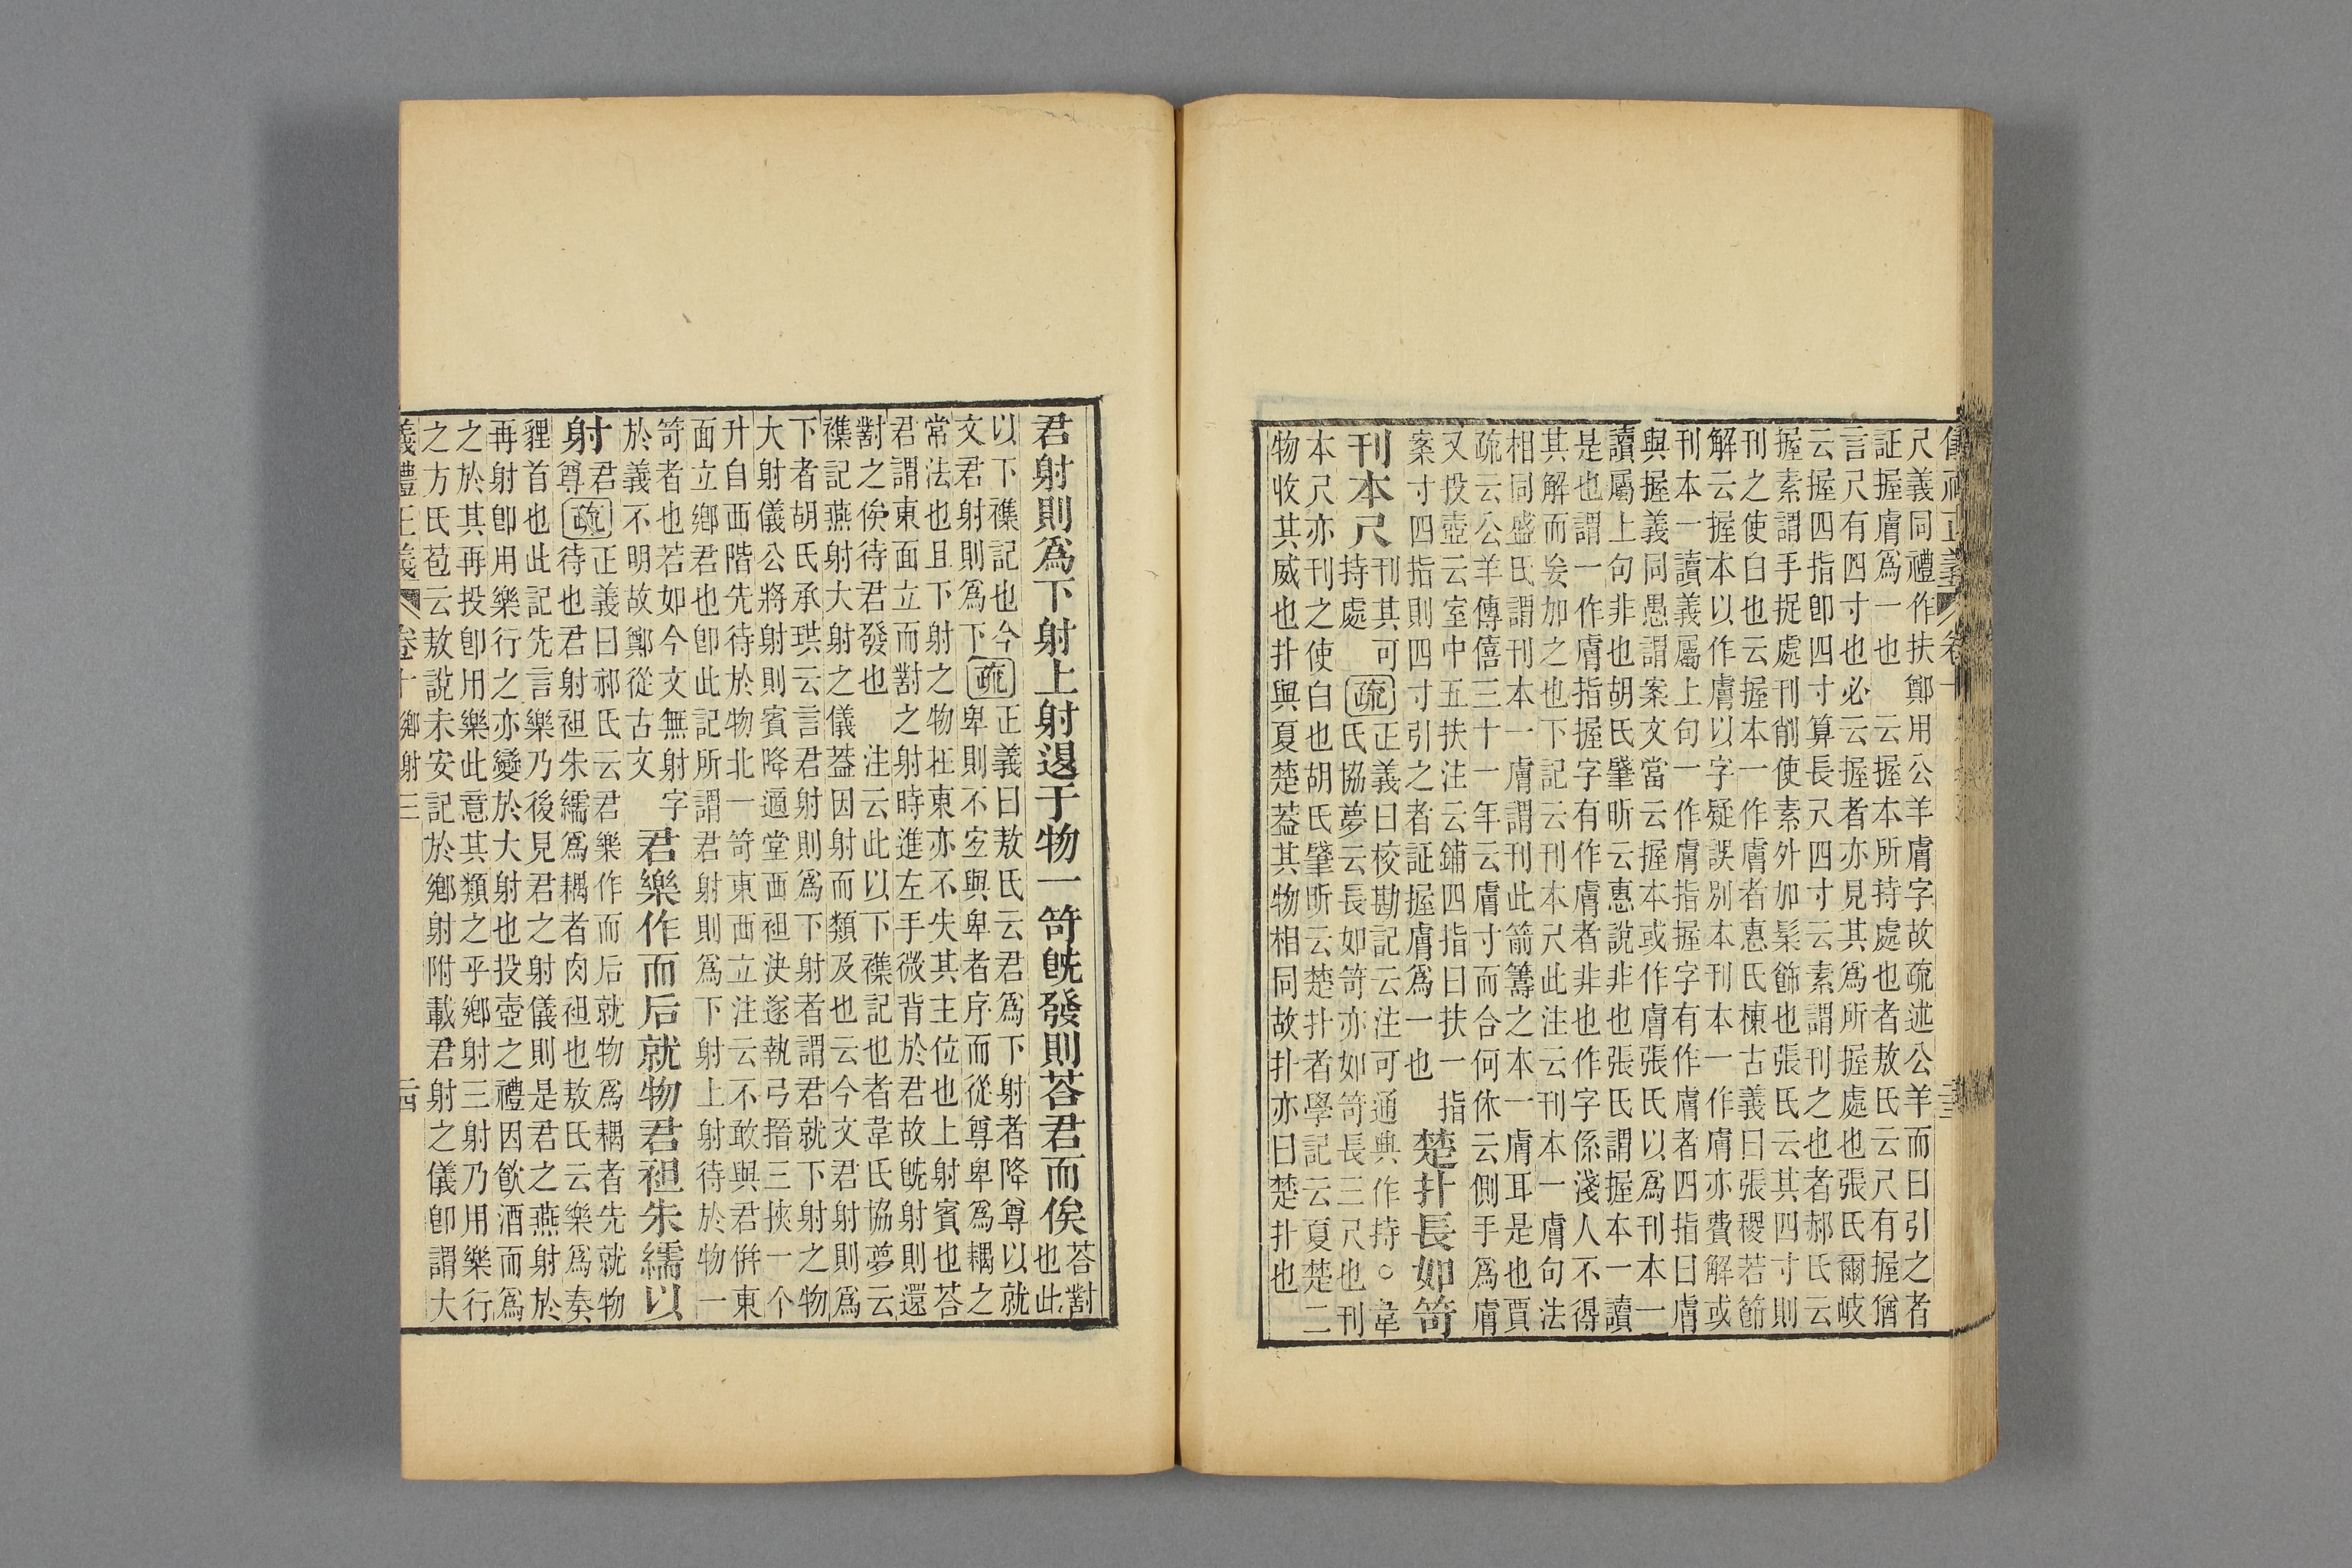 尺義同禮作扶鄭用公羊膚字故疏述公羊而曰引之者
証握膚爲一也　云握本所持處也者敖氏云尺有握猶
言尺有四寸也必云握者亦見其爲所握處也張氏爾岐
云握四指卽四寸算長尺四寸云素謂刊之也者郝氏云
握素謂手捉處刊削使素外加髹飾也張氏云其四寸則
刊之使白也云握本一作膚者惠氏棟古義曰張稷若節
解云握本以作膚以字疑誤別本刊本一作膚亦費解或
刊本一讀義屬上句一作膚指握字有作膚者四指曰膚
與握義同愚謂案文當云握本或作膚張氏以爲刊本一
讀屬上句非也胡氏肇昕云惠說非也張氏謂握本一讀
是也謂一作膚指握字有作膚者非也作字係淺人不得
其解而妄加之也下記云刊本尺此注云刊本一膚句法
相同盛氏謂刊本一膚謂刊此箭籌之本一膚耳是也賈
疏云公羊傳僖三十一年云膚寸而合何休云側手爲膚
又投壺云室中五扶注云鋪四指曰扶一指
案寸四指則四寸引之者証握膚爲一也
楚扑長如笴
刊本尺
刊其可
持處
疏
正義曰校勘記云注可通典作持○韋
氏協夢云長如笴亦如笴長三尺也刊
本尺亦刊之使白也胡氏肇昕云楚扑者學記云夏楚二
物收其威也扑與夏楚葢其物相同故扑亦曰楚扑也
君射則爲下射上射退于物一笴旣發則荅君而俟
荅對
也此
以下襍記也今
文君射則爲下
疏
正義曰敖氏云君爲下射者降尊以就
卑則不室與卑者序而從尊卑爲耦之
常法也且下射之物在東亦不失其主位也上射賓也荅
君謂東面立而對之射時進左手微背於君故旣射則還
對之俟待君發也　注云此以下襍記也者韋氏協夢云
襍記燕射大射之儀葢因射而類及也云今文君射則爲
下者胡氏承珙云言君射則爲下射者謂君就下射之物
大射儀公將射則賓降適堂西袒決遂執弓搢三挾一个
升自西階先待於物北一笴東西立注云不敢與君倂東
面立鄉君也卽此記所謂君射則爲下射上射待於物一
笴者也若如今文無射字
於義不明故鄭從古文
君樂作而后就物君袒朱襦以
射
君
尊
疏
正義曰郝氏云君樂作而后就物爲耦者先就物
待也君射袒朱襦爲耦者肉袒也敖氏云樂爲奏
貍首也此記先言樂乃後見君之射儀則是君之燕射於
再射卽用樂行之亦變於大射也投壺之禮因飮酒而爲
之於其再投卽用樂此意其類之乎鄉射三射乃用樂行
之方氏苞云敖說未安記於鄉射附載君射之儀卽謂大